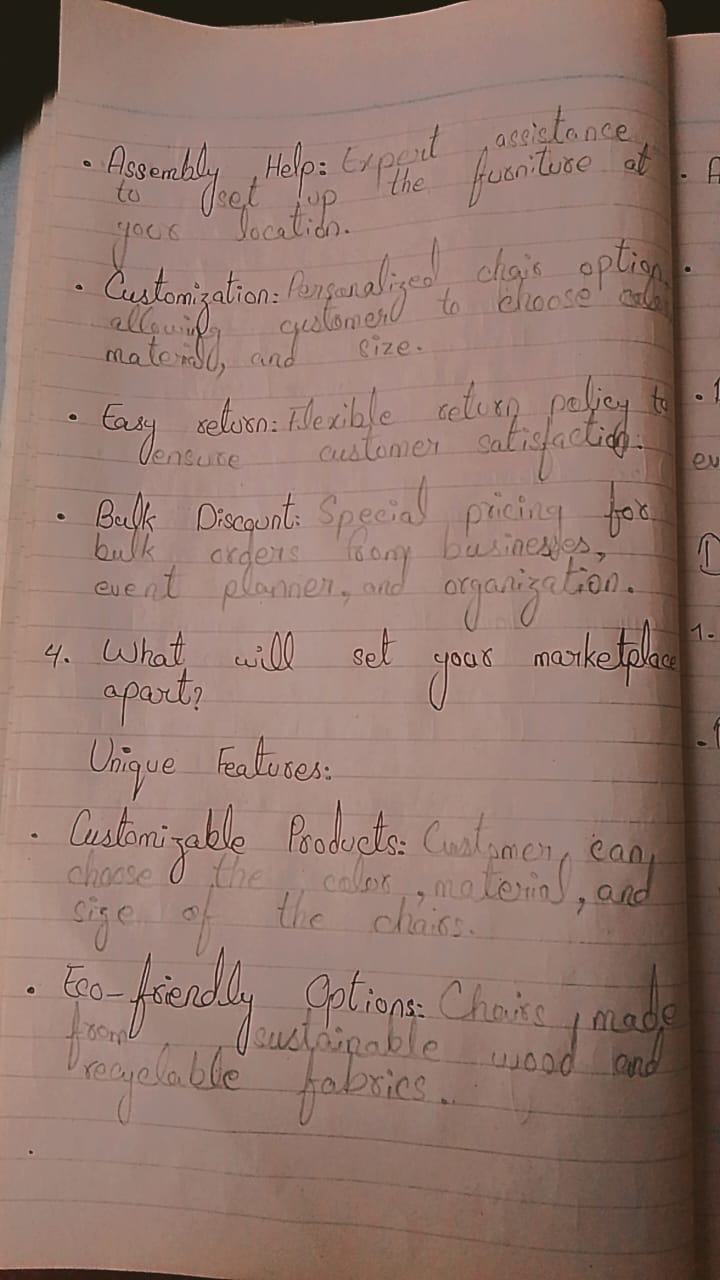 • Assembly Help: Expert assistance
to set up the furniture at
your location.
• Customization: Personalized chair option,
allowing customer to choose color
material, and size.
• Easy return: Flexible return policy to
ensure customer satisfaction.
• Bulk Discount: Special pricing for
bulk orders from businesses,
event planner, and organization.
4. What will set your marketplace
apart?
Unique Features:
• Customizable Products: Customer can
choose the color, material, and
size of the chairs.
• Eco-friendly Options: Chairs made
from sustainable wood and
recyclable fabrics.